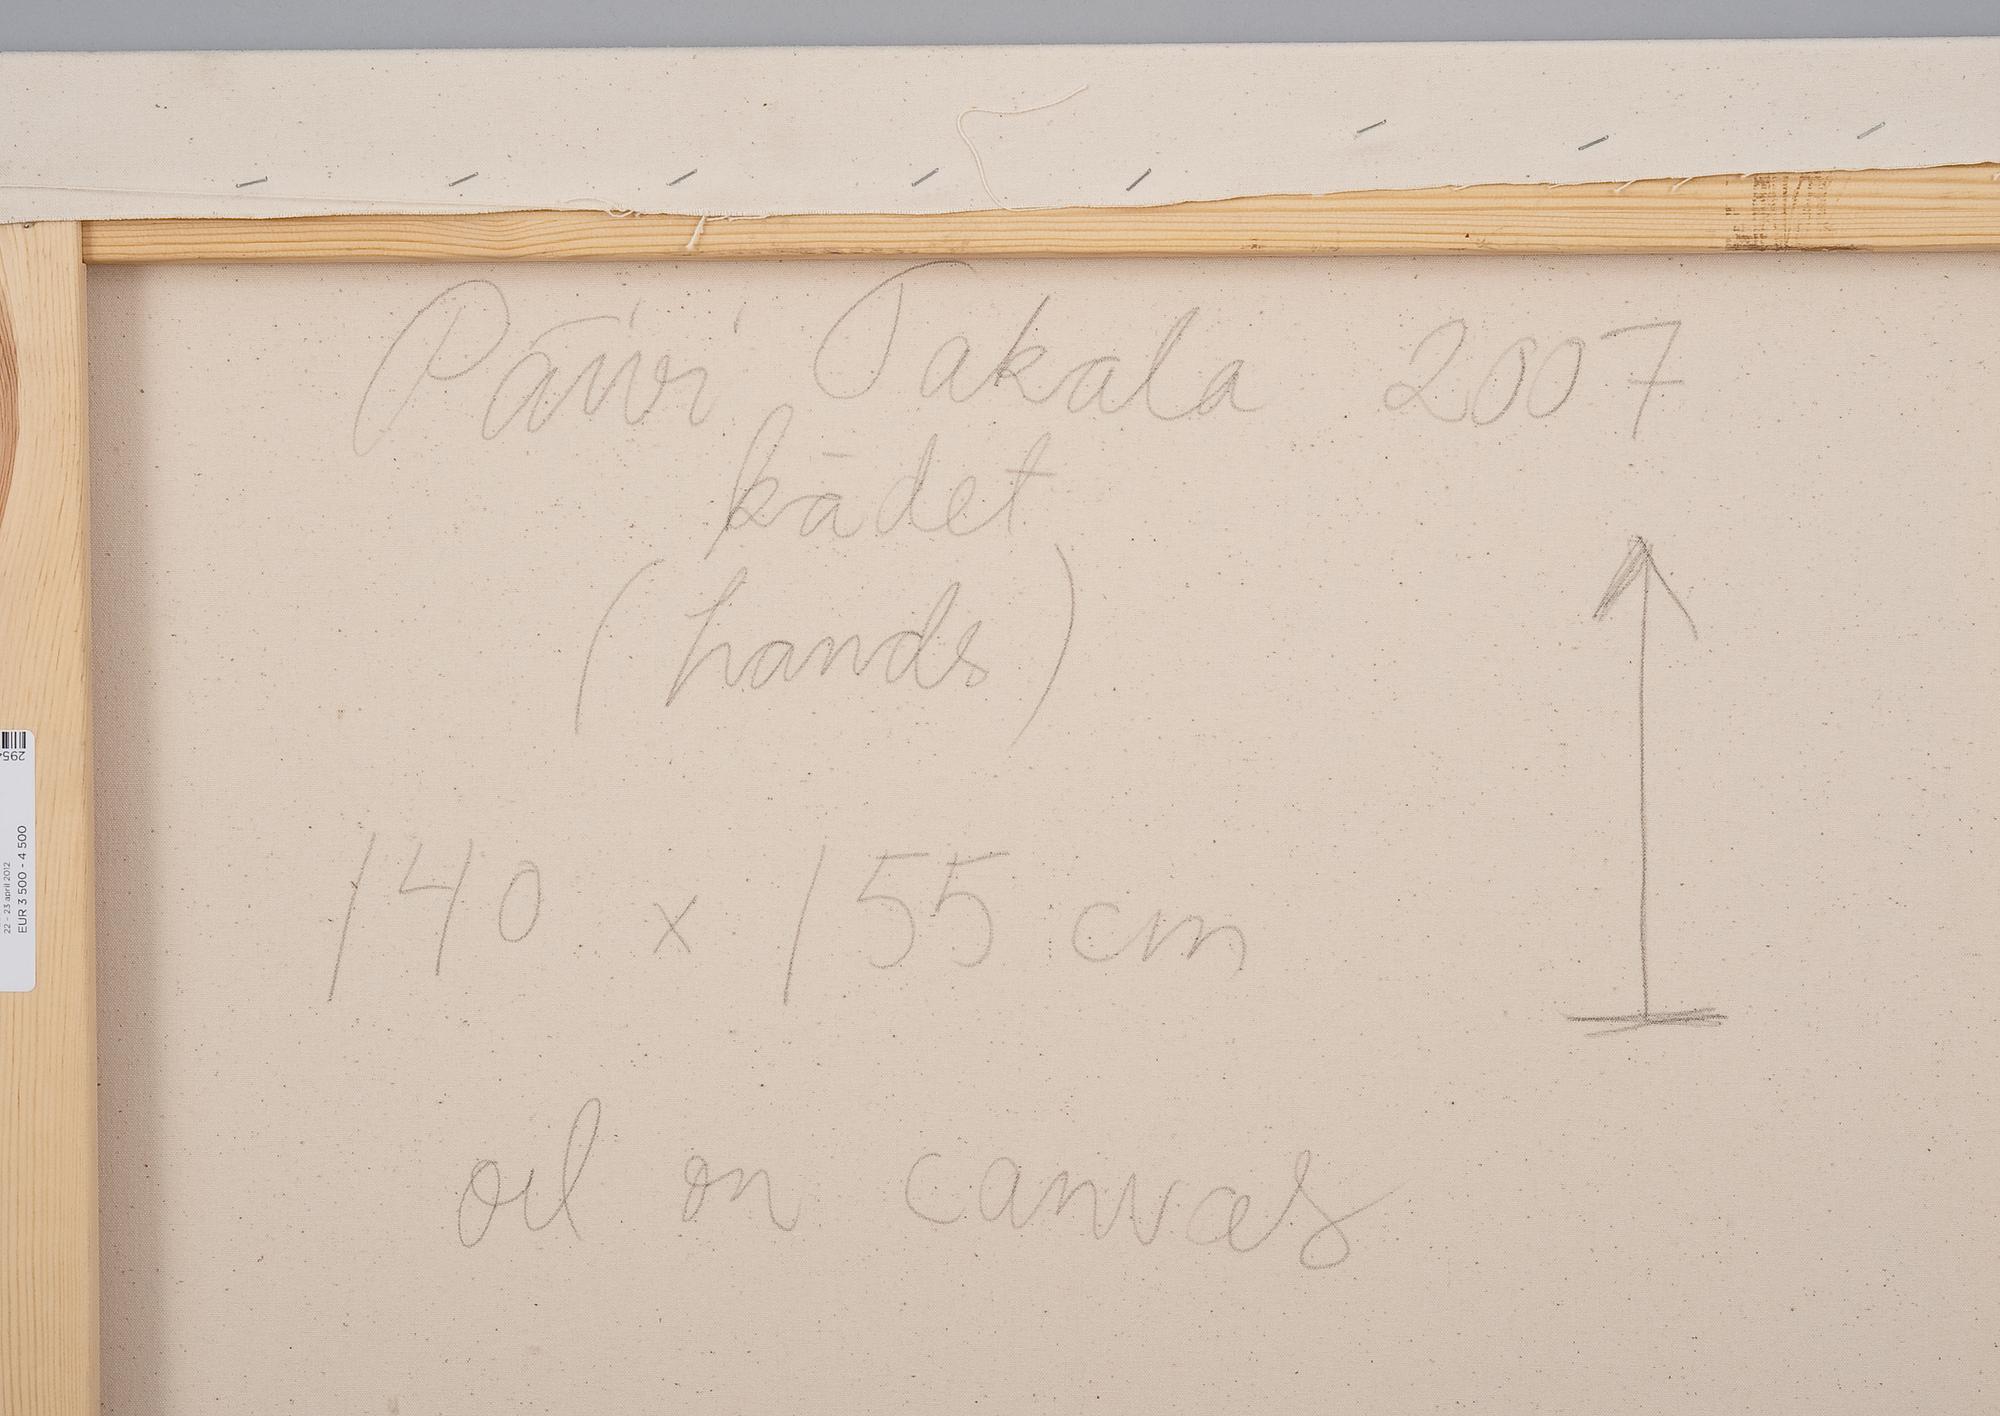 Päivi Takala 2007
kädet
(hands)
140 x 155 cm
oil on canvas
22 - 23 april 2012
EUR 3 500 - 4 500